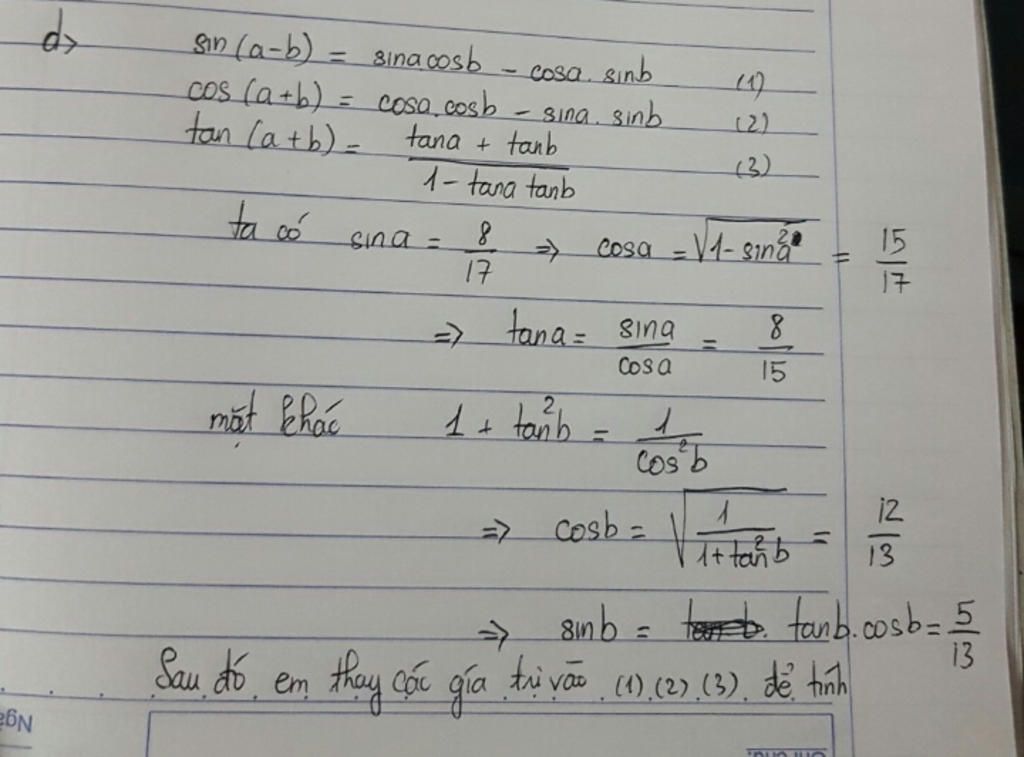 d> sin(a-b) = sina cosb - cosa. sinb (1)
cos(a+b) = cosa.cosb - sina. sinb (2)
tan(a+b) = \frac{tana + tanb}{1 - tana tanb} (3)
ta có sina = \frac{8}{17} => cosa = \sqrt{1-sin²a} = \frac{15}{17}
=> tana = \frac{sina}{cosa} = \frac{8}{15}
mặt khác 1 + tan²b = \frac{1}{cos²b}
=> cosb = \sqrt{\frac{1}{1+tan²b}} = \frac{12}{13}
=> sinb = tanb.cosb = \frac{5}{13}
Sau đó em thay các gía trị vào (1).(2).(3). để tính